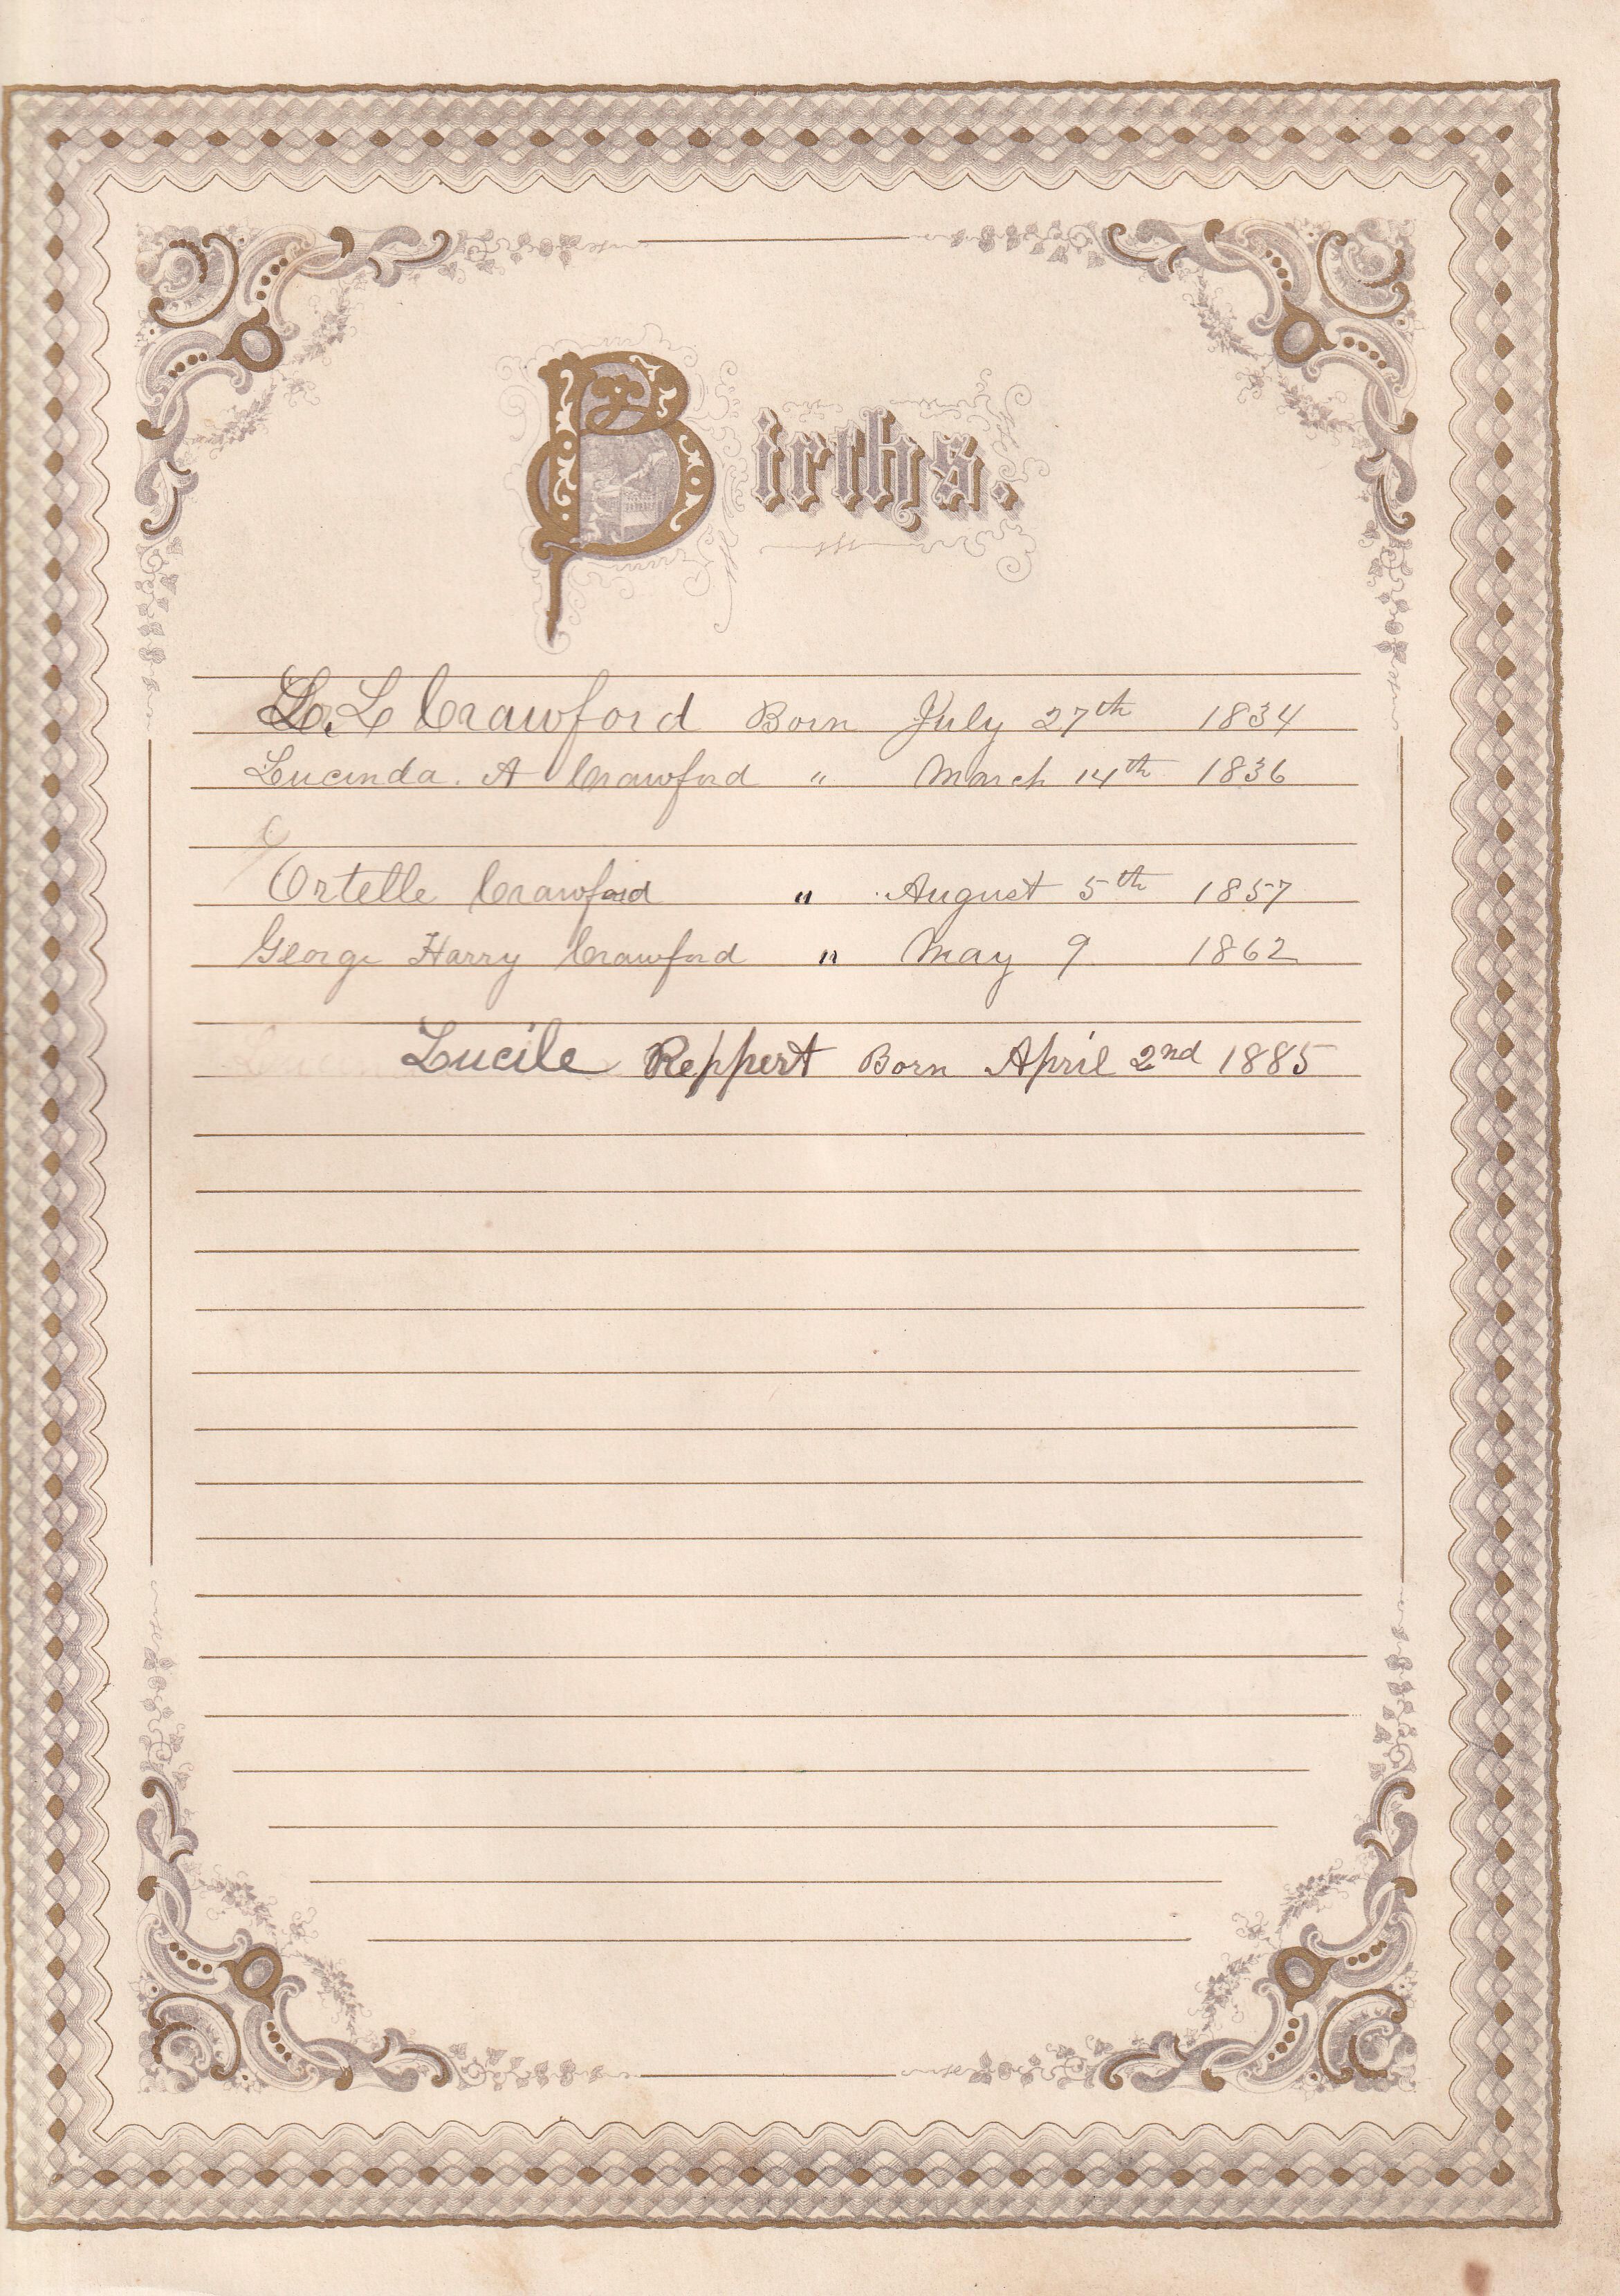 Births.
L. L Crawford Born July 27th 1834
Lucinda. A Crawford " March 14th 1836
Ortelle Crawford " August 5th 1857
George Harry Crawford " May 9 1862
Lucile Reppert Born April 2nd 1885